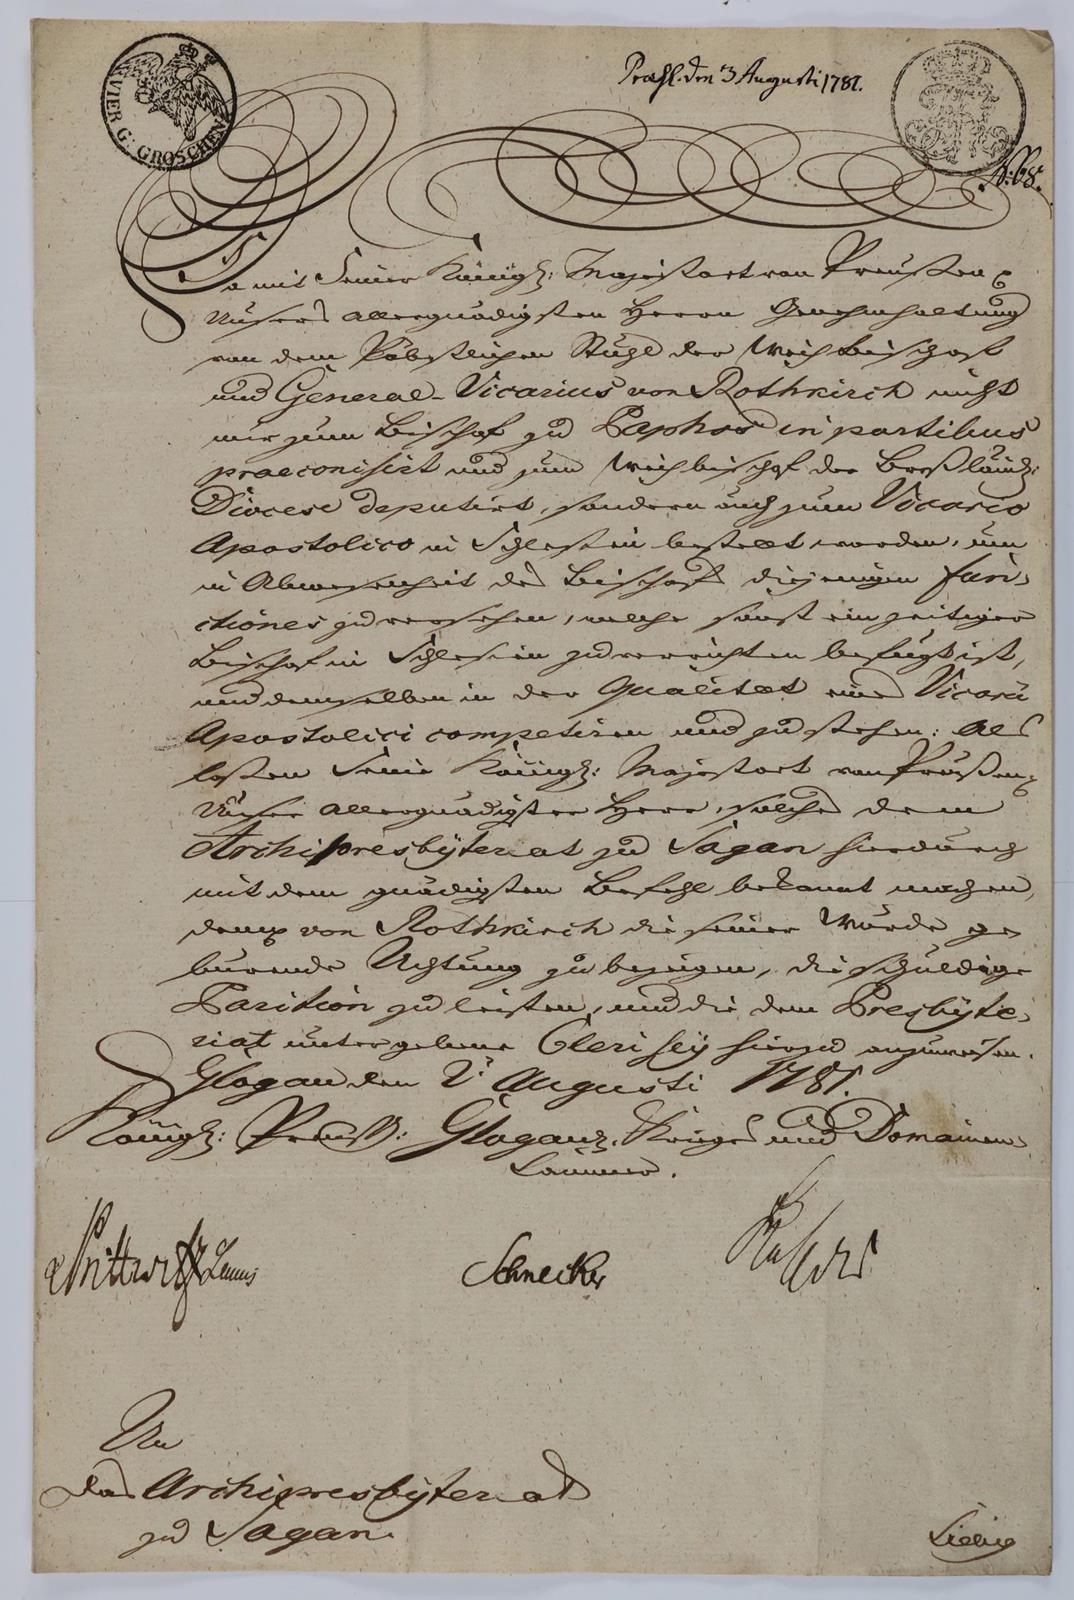 VIER G: GROSCHEN
Praes. den 3 Augusti 1781.
Da mit Seiner Königl: Majestaet von Preußen
Unsers allergnädigsten Herrn Genehmhaltung
von dem Päbstlichen Stuhl der Weihbischoff
und General-Vicarius von Rothkirch nicht
nur zum Bischof zu Paphos in partibus
praeconisirt und zum Weihbischof der Breßlauisch:
Dioecese deputirt, sondern auch zum Vicario
Apostolico in Schlesien bestellt worden, um
in Abwesenheit des Bischofs diejenigen fun-
ctiones zu versehen, welche sonst ein zeitiger
Bischof in Schlesien zu verrichten befugt ist,
und demselben in der Qualitaet eines Vicarii
Apostolici competiren und zu stehen: Als
laßen Seine Königl: Majestaet von Preußen
Unser allergnädigster Herr, solches dem
Archipresbyteriat zu Sagan hierdurch
mit dem gnädigsten Befehl bekannt machen,
dem von Rothkirch die seiner Würde ge
bürende Achtung zu bezeigen, die schuldige
Parition zu leisten, und die dem Presbyte-
riat untergebene Clerisey hierzu anzuweisen.
Glogau den 2t Augusti 1781.
Königl: Preuß: Glogausch. Krieges und Domainen
Cammer.
Prittwitz Schnecker
An
das Archipresbyteriat
zu Sagan.